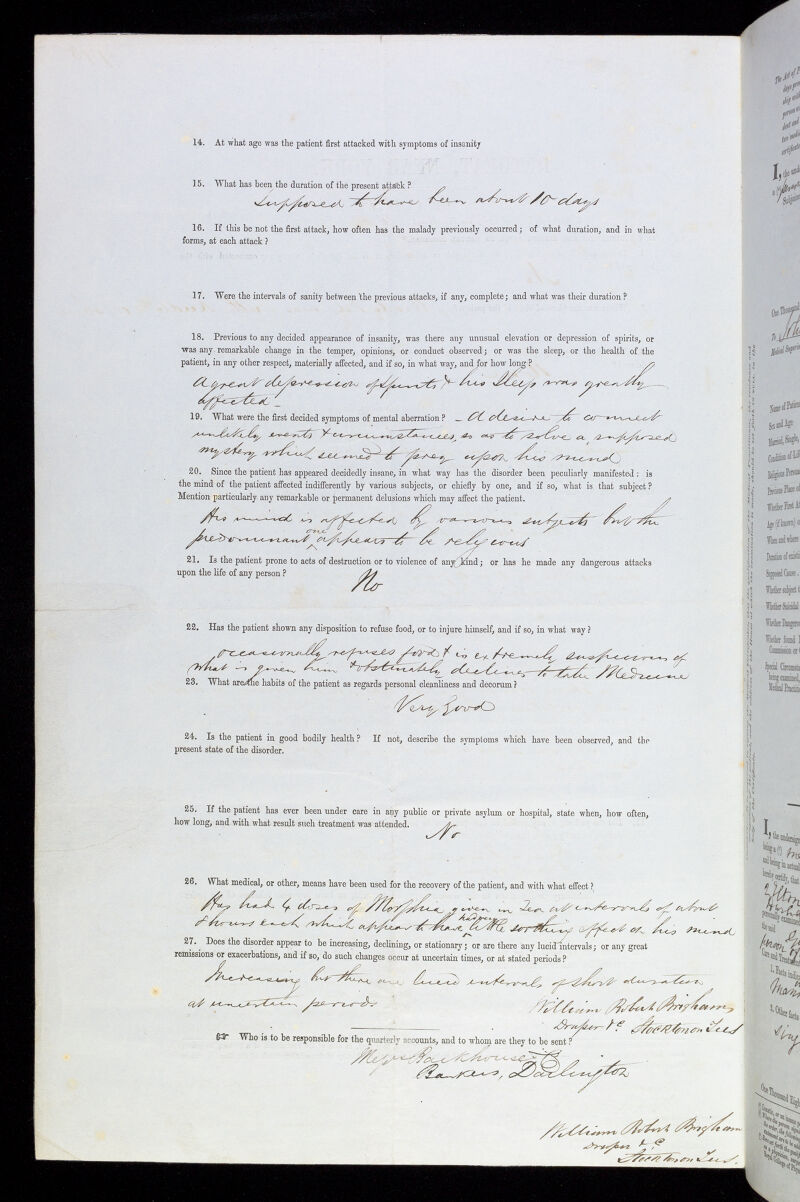 14. At what age was the patient first attacked with symptoms of insanity
15. What has been the duration of the present attack?
Supposed to have been about 10 days
16. If this be not the first attack, how often has the malady previously occurred; of what duration, and in what
forms, at each attack?
17. Were the intervals of sanity between the previous attacks, if any, complete; and what was their duration?
18. Previous to any decided appearance of insanity, was there any unusual elevation or depression of spirits, or
was any remarkable change in the temper, opinions, or conduct observed; or was the sleep, or the health of the
patient, in any other respect, materially affected, and if so, in what way, and for how long?
A great depression of spirits & his Sleep was greatly
affected
19. What were the first decided symptoms of mental aberration? A desire to connect
unlikely events & circumstances, so as to solve a supposed
mystery which seemed to prey upon his mind
20. Since the patient has appeared decidedly insane, in what way has the disorder been peculiarly manifested: is
the mind of the patient affected indifferently by various subjects, or chiefly by one, and if so, what is that subject?
Mention particularly any remarkable or permanent delusions which may affect the patient.
His mind is affected by various subjects but the
predominant one appears to be religious
21. Is the patient prone to acts of destruction or to violence of any kind; or has he made any dangerous attacks
upon the life of any person?
No
22. Has the patient shown any disposition to refuse food, or to injure himself, and if so, in what way?
occasionally refuses food & is extremely suspicious of
what is given him & obstinately declines to take Medicine
23. What are the habits of the patient as regards personal cleanliness and decorum?
Very Good
24. Is the patient in good bodily health? If not, describe the symptoms which have been observed, and the
present state of the disorder.
25. If the patient has ever been under care in any public or private asylum or hospital, state when, how often,
how long, and with what result such treatment was attended.
No
26. What medical, or other, means have been used for the recovery of the patient, and with what effect?
Has had 4 doses of Morphia given in Tea at intervals of about
8 hours each which appear to have had very little soothing effect on his mind
27. Does the disorder appear to be increasing, declining, or stationary; or are there any lucid intervals; or any great
remissions or exacerbations, and if so, do such changes occur at uncertain times, or at stated periods?
Increasing but there are lucid intervals of short duration
at uncertain periods
William Robert Brigham
Draper &c Stockton on Tees
Who is to be responsible for the quarterly accounts, and to whom are they to be sent?
Backhouse & Co
Bankers, Darlington
William Robert Brigham
Draper &c
Stockton on Tees.